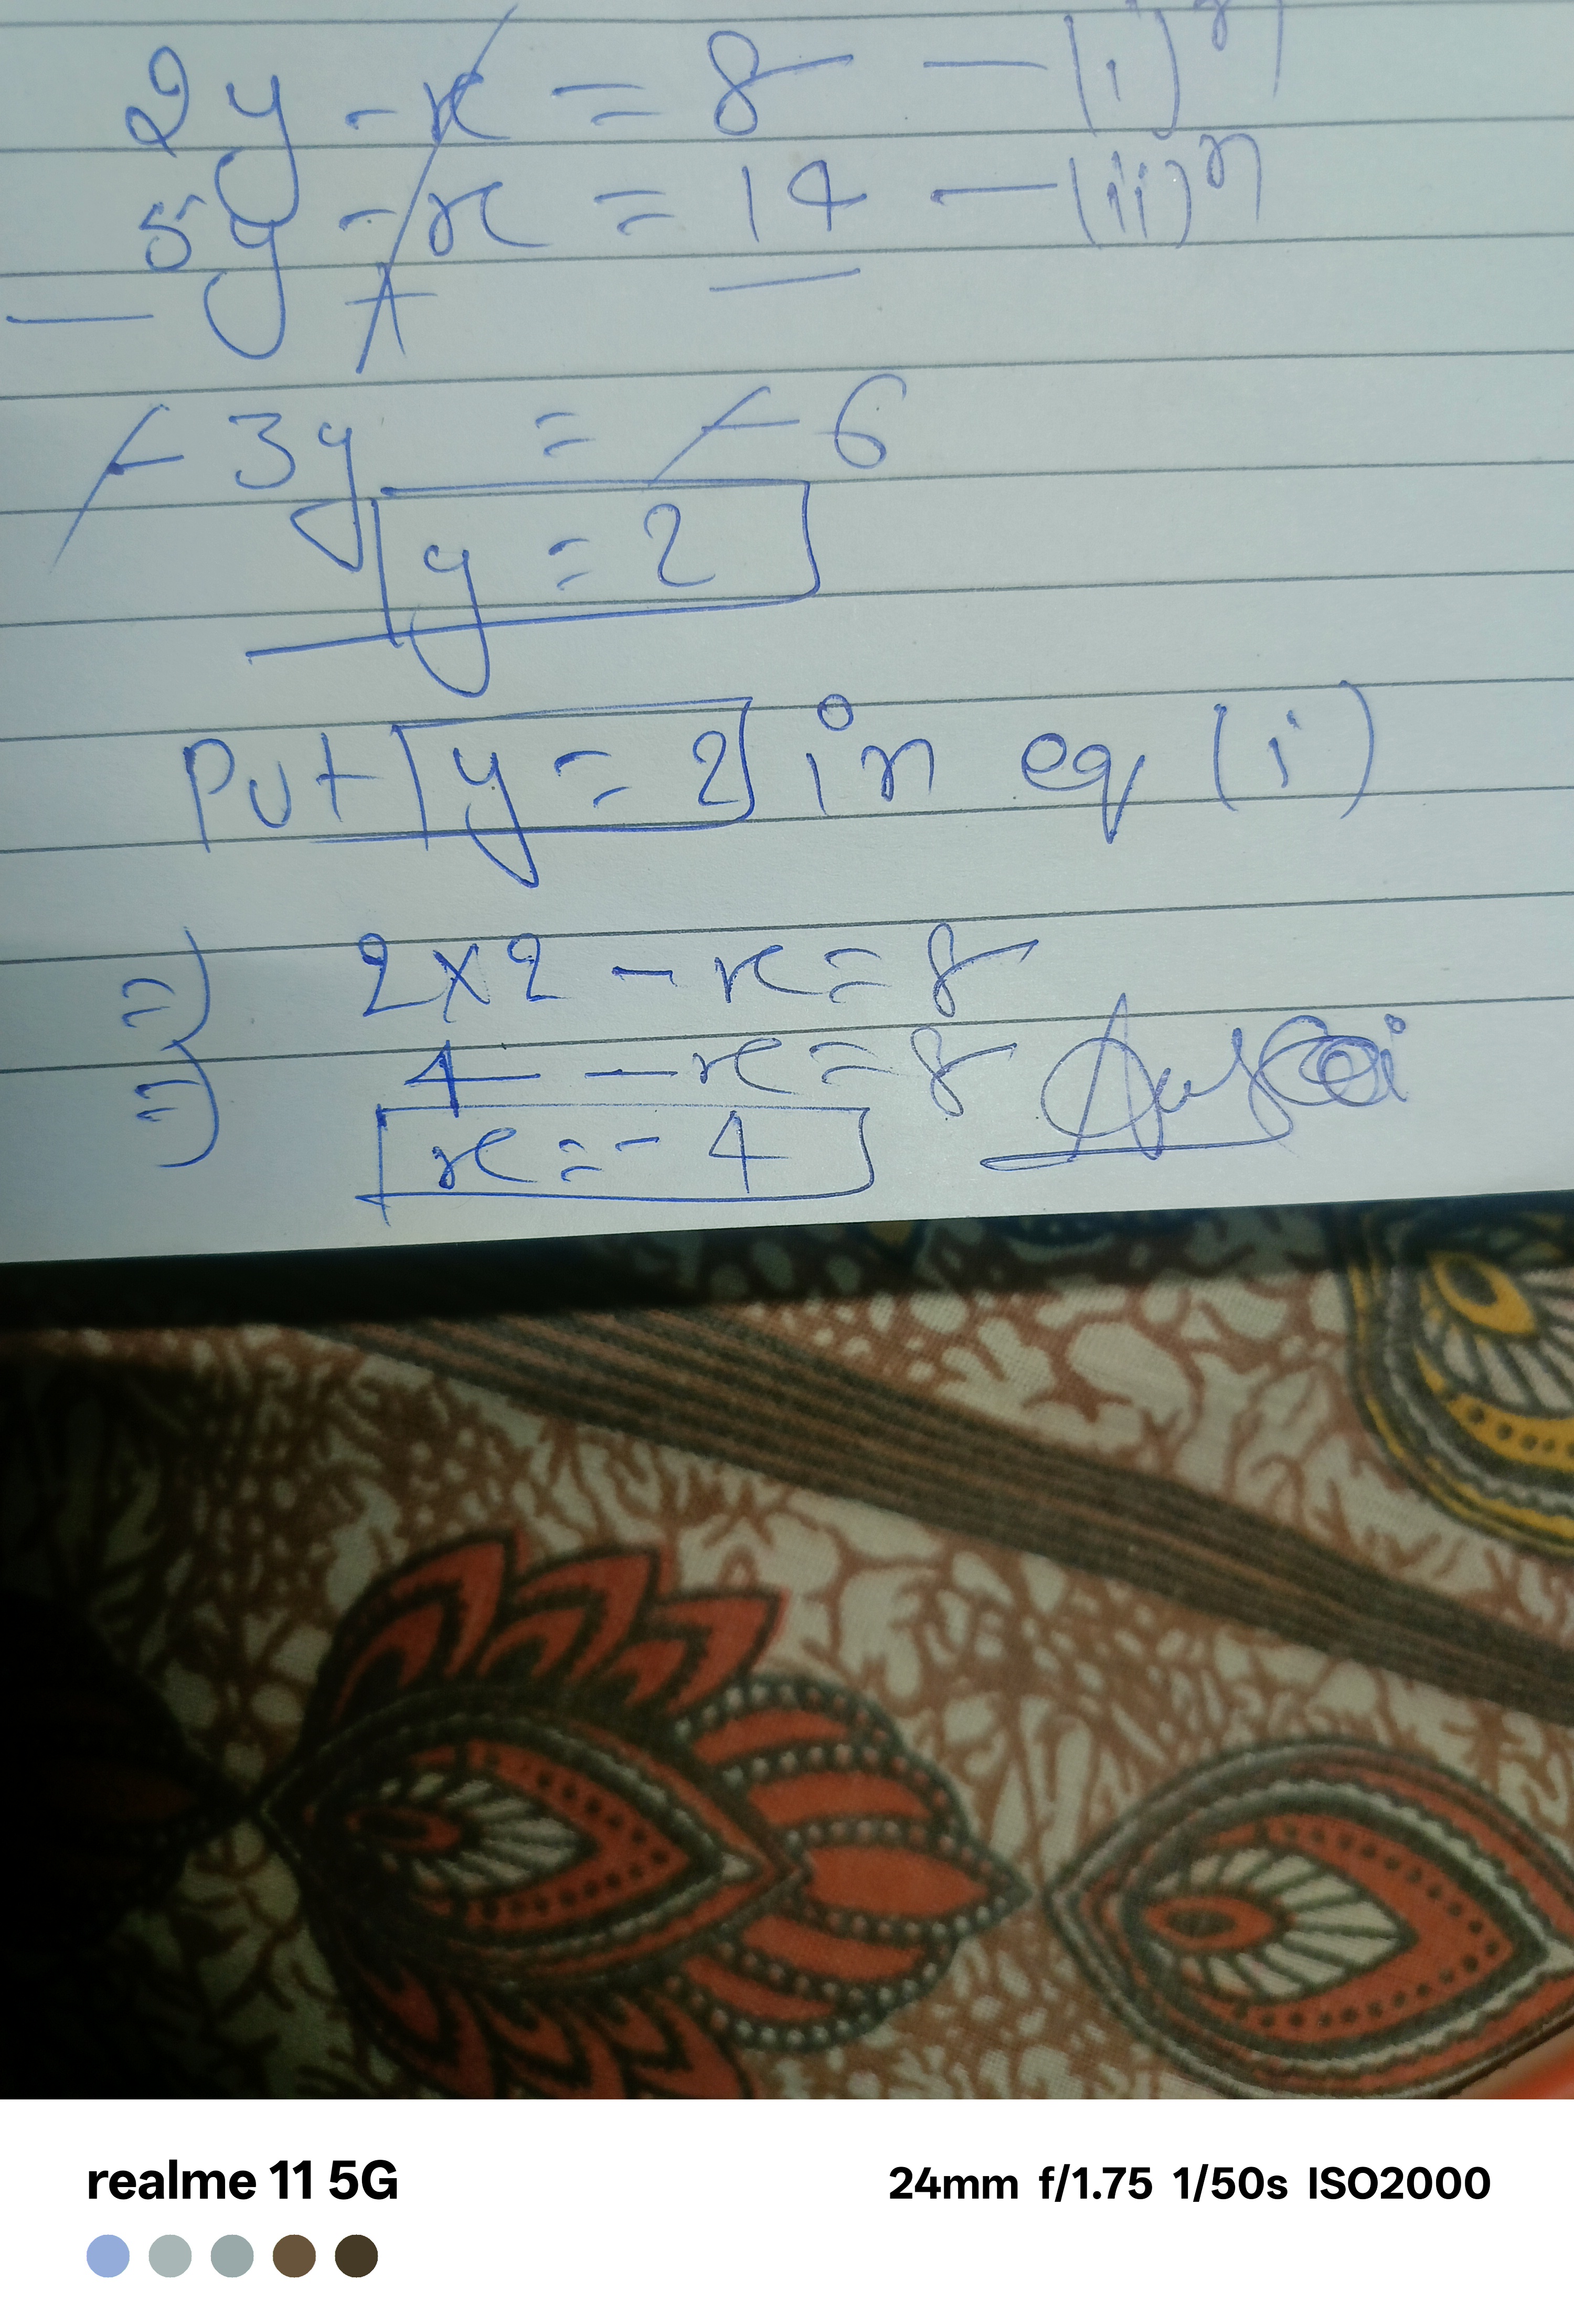 2y - x = 8 — (i)n
5y - x = 14 — (ii)n
— + —
- 3y = - 6
y = 2
Put y = 2 in eq (i)
=) 2x2 - x = 8
=) 4 - x = 8
x = - 4
realme 11 5G
24mm f/1.75 1/50s ISO2000